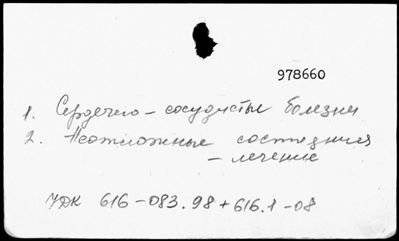 978660
1. Сердечно – сосудистые болезни
2. Неотложные состояния
– лечение
УДК 616-083.98+616.1-08